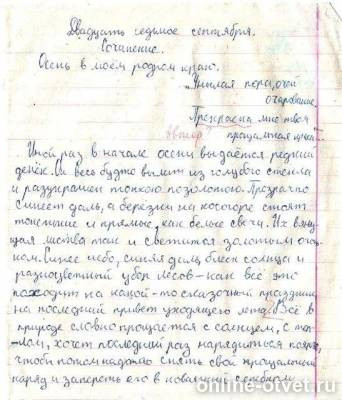 Двадцать седьмое сентября.
Сочинение.
Осень в моём родном краю.
"Унылая пора, очей
очарованье
Прекрасна мне твоя
автор прощальная краса"
Иной раз в начале осени выдаётся редкий
денёк. Он весь будто вылит из голубого стекла
и разукрашен тонкою позолотой. Прозрачно
синеет даль, а березки на косогоре стоят
тоненькие и прямые, как белые свечи. Их вянущая
листва так и светится золотым огоньком.
Синее небо, синяя даль, блеск солнца и
разноцветный убор лесов - как всё это
походит на какой-то сказочный праздник,
на последний привет уходящего лета! Всё в
природе словно прощается с солнцем, с теплом,
хочет последний раз нарядиться
чтобы потом надолго снять свой прощальный
наряд и запереть его в
online-otvet.ru